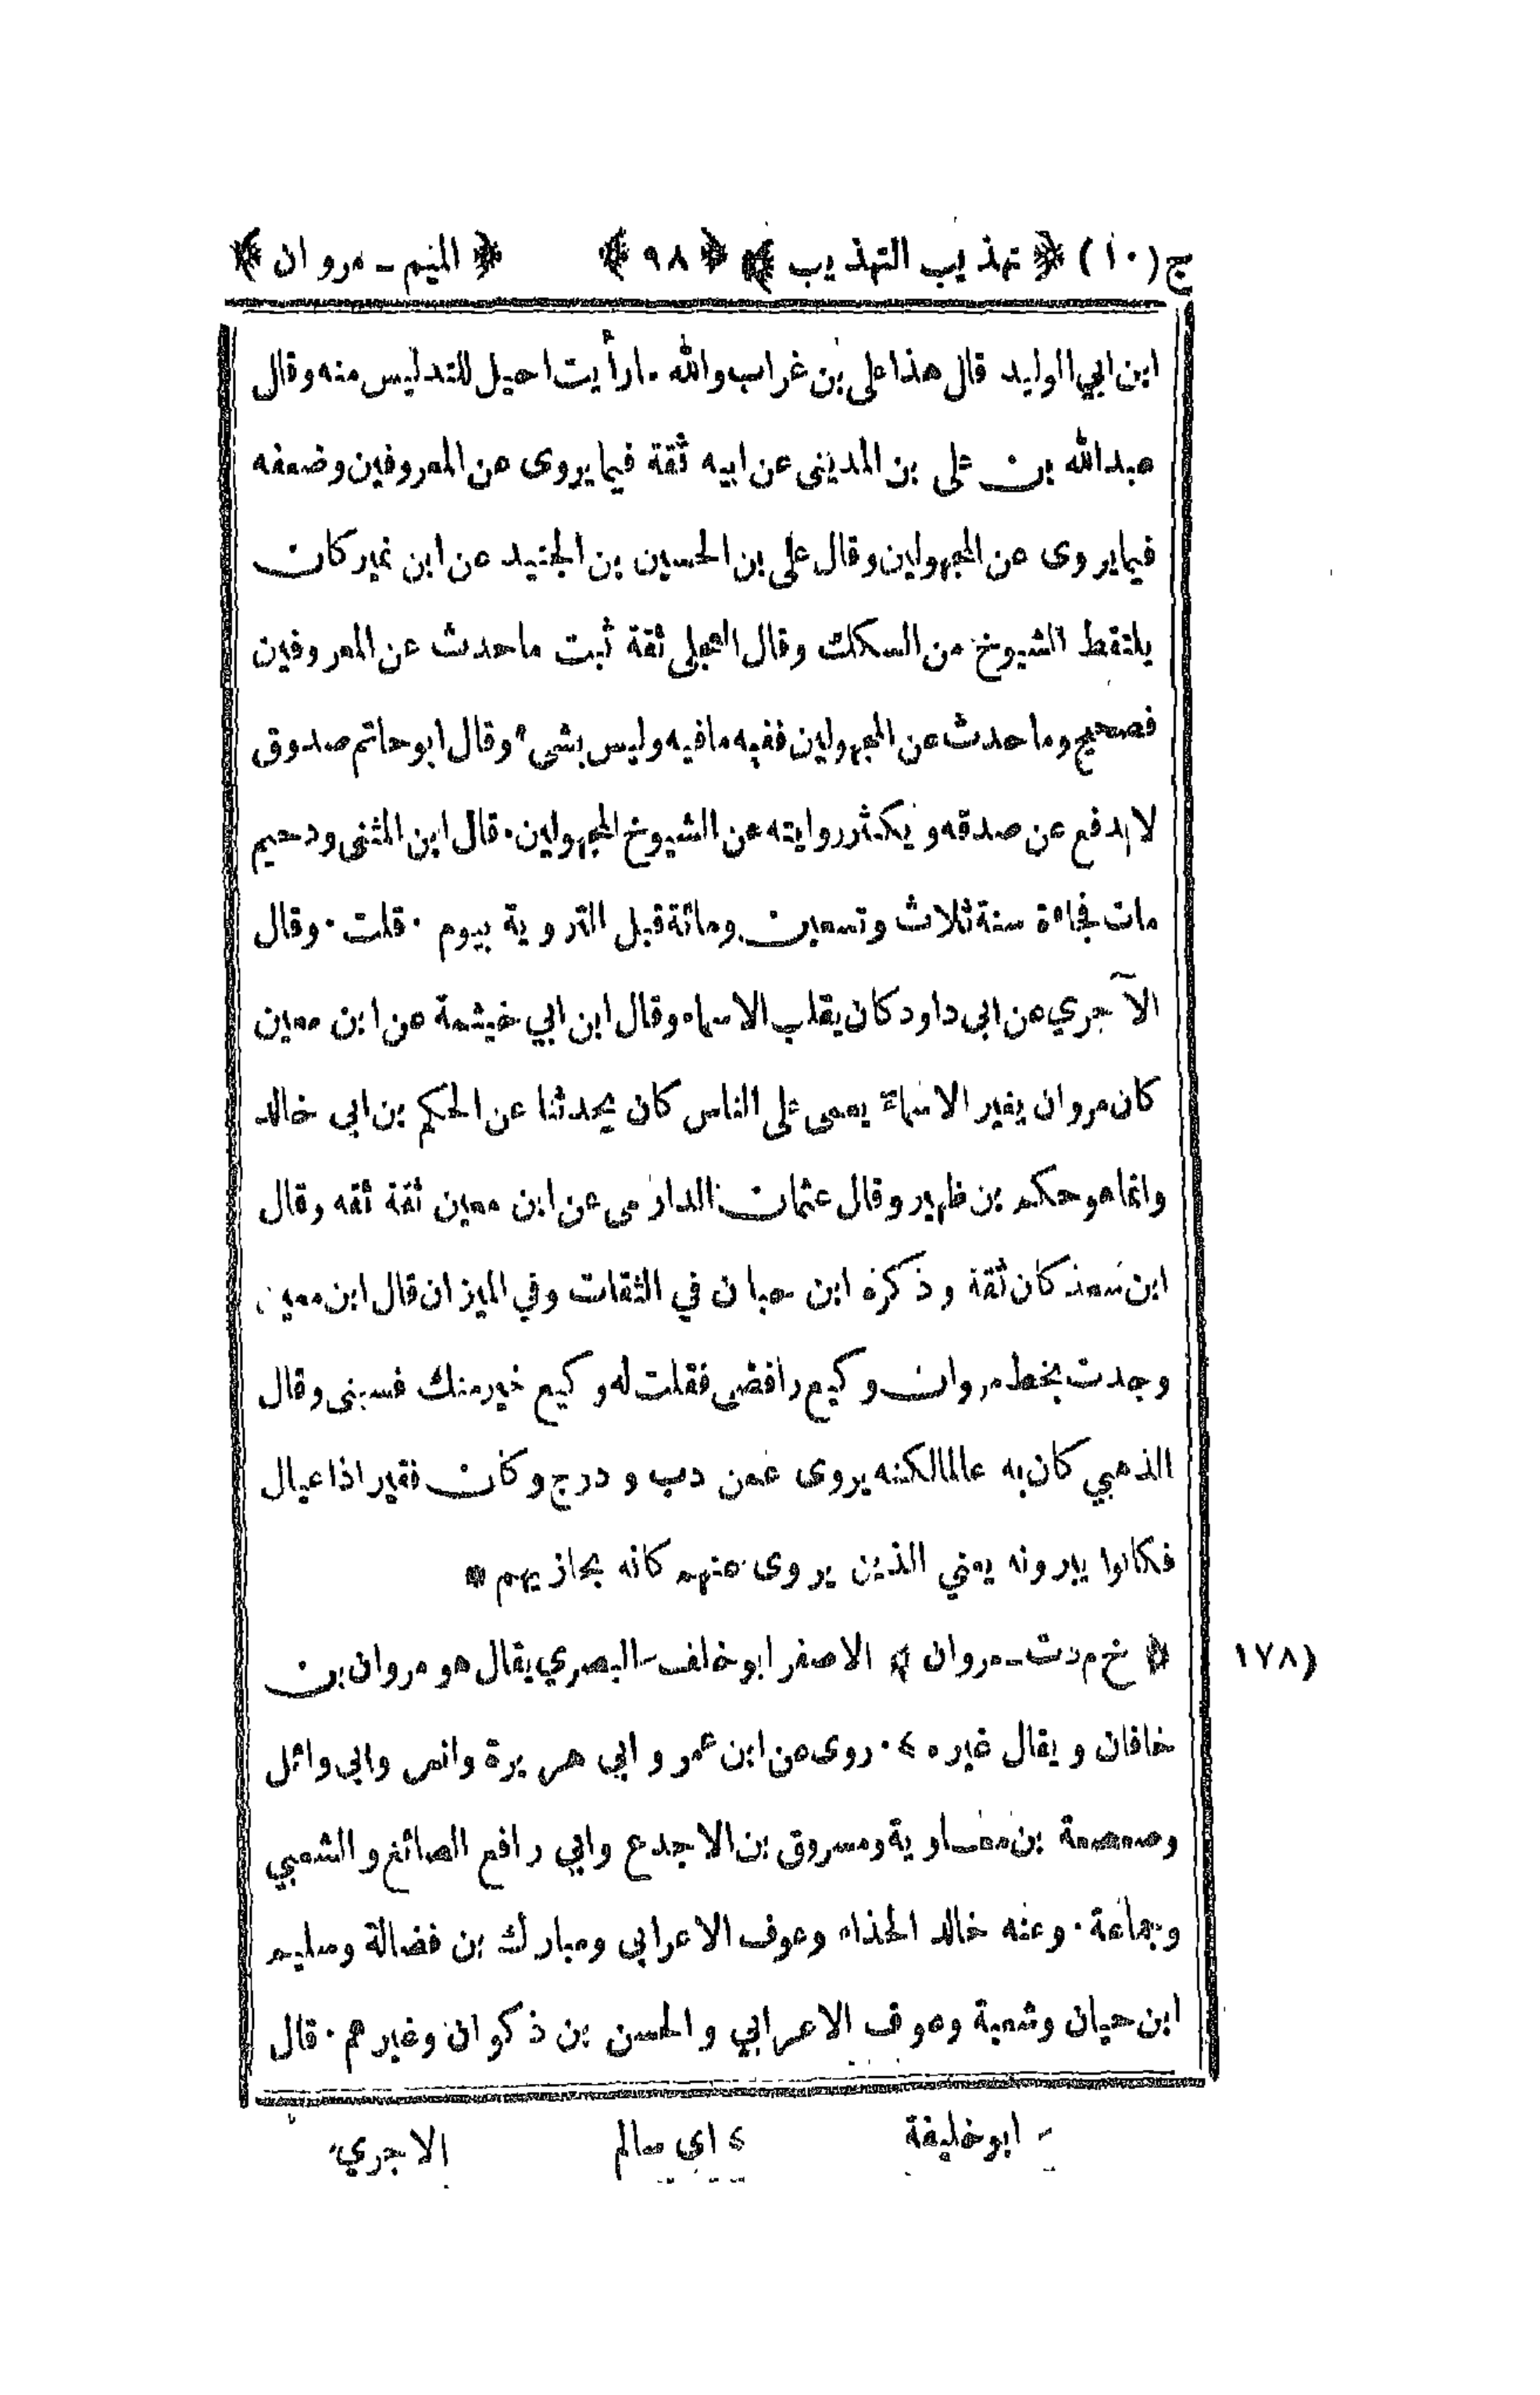 ج (١٠) ﴿ تهذيب التهذيب ﴾ ﴿ ٩٨ ﴾ ﴿ الميم ـ مروان ﴾
ابن ابي الوليد قال هذا علي بن غراب والله ما رأيت احيل للتدليس منه وقال
عبدالله بن علي بن المديني عن ابيه ثقة فيما يروى عن المعروفين وضعفه
فيما يروى عن المجهولين وقال علي بن الحسين بن الجنيد عن ابن نمير كان
يلتقط الشيوخ من السكك وقال العجلي ثقة ثبت ما حدث عن المعروفين
فصحيح وما حدث عن المجهولين ففيه ما فيه وليس بشيء وقال ابو حاتم صدوق
لا يدفع عن صدقه ويكثر روايته عن الشيوخ المجهولين. قال ابن المثنى ودحيم
مات فجاءة سنة ثلاث وتسعين ومائة قبل التروية بيوم . قلت . وقال
الآجري عن ابي داود كان يقلب الاسماء وقال ابن ابي خيثمة عن ابن معين
كان مروان يغير الاسماء يعمى على الناس كان يحدثنا عن الحكم بن ابي خالد
وانما هو حكم بن ظهير وقال عثمان الدارمى عن ابن معين ثقة ثقه وقال
ابن سعد كان ثقة وذكره ابن حبان في الثقات وفي الميزان قال ابن معين
وجدت بخط مروان وكيع رافضى فقلت له وكيع خير منك فسبنى وقال
الذهبي كان به عالما لكنه يروى عمن دب ودرج وكان فقيرا ذا عيال
فكانوا يبرونه يعني الذين يروى عنهم كانه يجازيهم *
(١٧٨ ﴿ خ م د ت ـ مروان ﴾ الاصفر ابو خلف - البصري يقال هو مروان بن
خاقان ويقال غيره ٤ . روى عن ابن عمر وابي هريرة وانس وابي وائل
وصعصعة بن معاوية ومسروق بن الاجدع وابي رافع الصائغ والشعبي
وجماعة . وعنه خالد الحذاء وعوف الاعرابي ومبارك بن فضالة وسليم
ابن حيان وشعبة وعوف الاعرابي والحسن بن ذكوان وغيرهم . قال
- ابو خليفة ٤ اى سالم الاجري